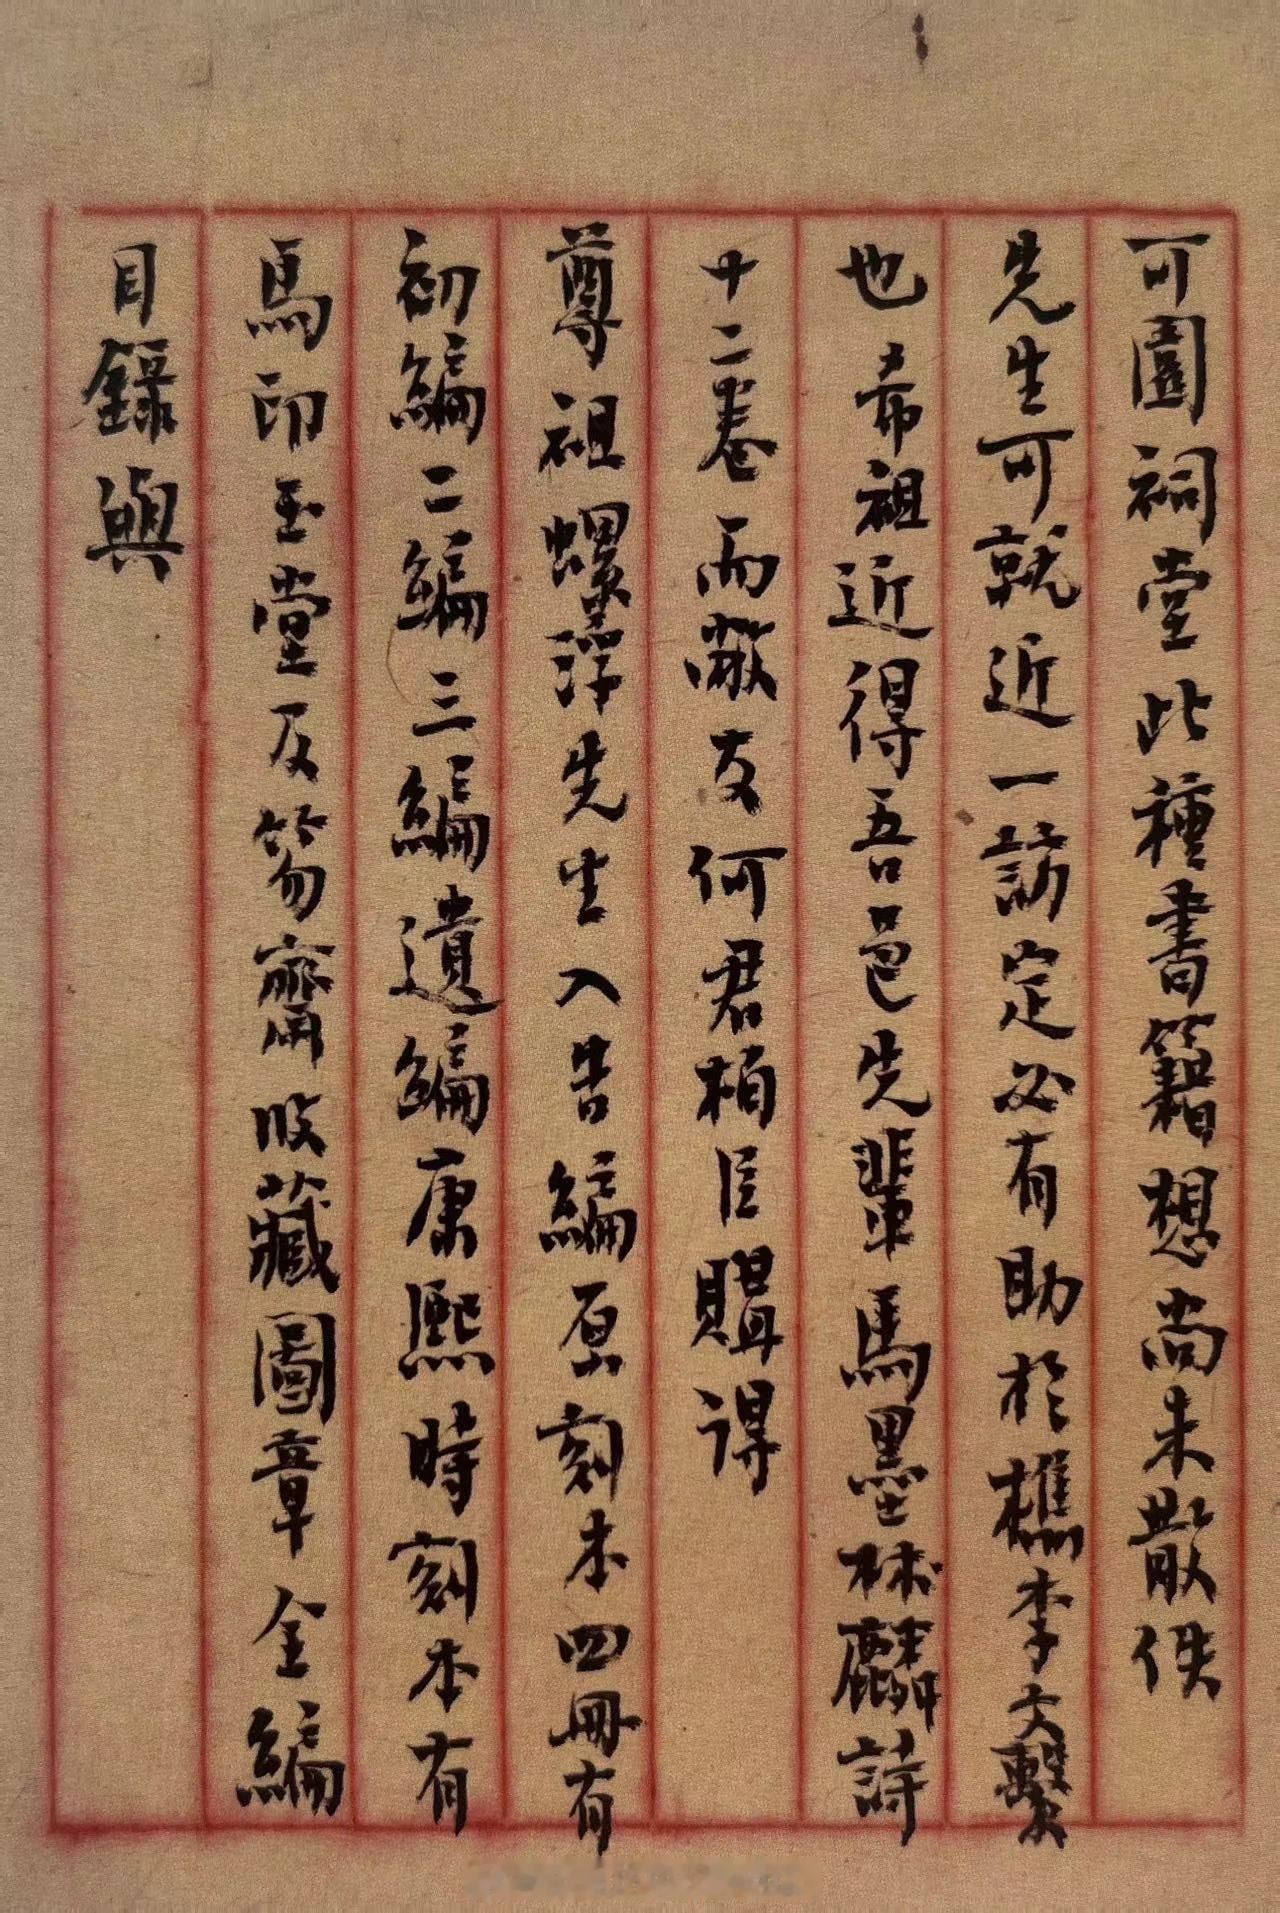 可園祠堂此種書籍想尚未散佚
先生可就近一訪定必有助於檇李文繫
也希祖近得吾邑先輩馬墨林麟詩
十二卷而敝友何君柏臣購得
尊祖螺浮先生入告編原刻本四冊有
初編二編三編遺編康熙時刻本有
馬印玉堂及笏齋收藏圖章全編
目錄與